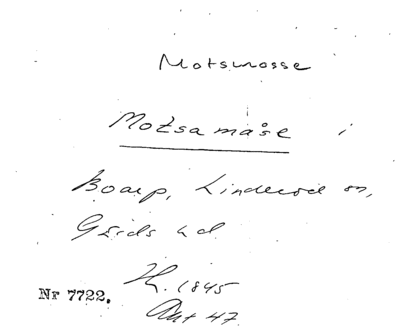 Motsmosse
Motsamåse i
Boarp, Linderöd sn,
Gärds hd
Th. 1845
Nr 7722.
Akt 47